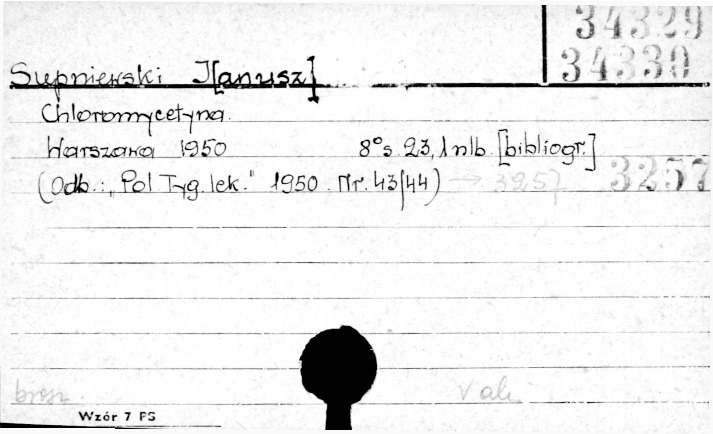 34329
34330
Supniewski J[anusz]
Chloromycetyna.
Warszawa 1950 8° s. 23, 1 nlb. [bibliogr.]
(Odb.: "Pol Tyg. lek." 1950. Nr. 43/44) → 3257 3257
brosz.
Wzór 7 PS